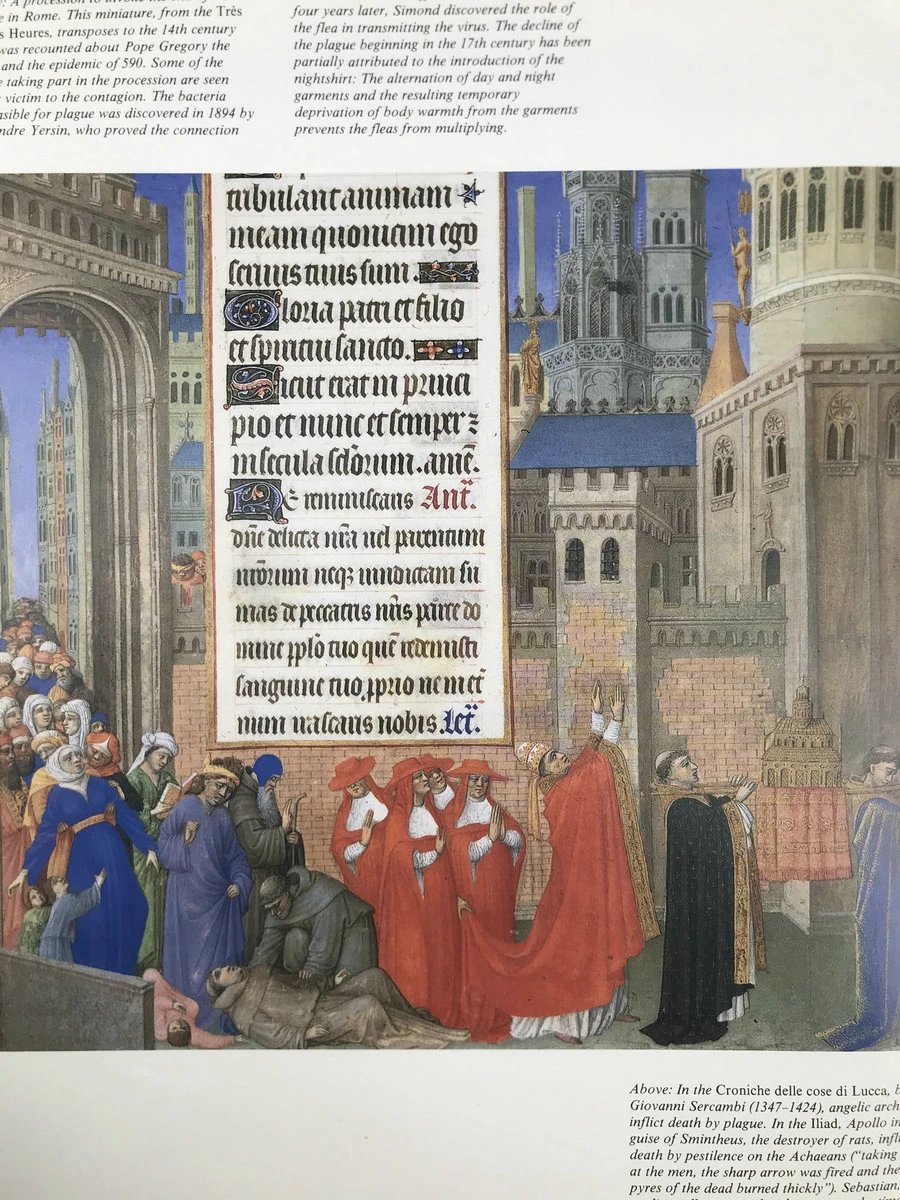 A procession to
e in Rome. This miniature, from the Très
s Heures, transposes to the 14th century
was recounted about Pope Gregory the
and the epidemic of 590. Some of the
e taking part in the procession are seen
victim to the contagion. The bacteria
nsible for plague was discovered in 1894 by
ndre Yersin, who proved the connection
four years later, Simond discovered the role of
the flea in transmitting the virus. The decline of
the plague beginning in the 17th century has been
partially attributed to the introduction of the
nightshirt: The alternation of day and night
garments and the resulting temporary
deprivation of body warmth from the garments
prevents the fleas from multiplying.
tribulant animam
meam quoniam ego
seruus tuus sum.
Gloria patri et filio
et spiritui sancto.
Sicut erat in princi
pio et nunc et semper ⁊
in secula sclorum. amē.
Ne reminiscaris Ant.
dñe delicta nr̄a uel parentum
nr̄orum neqꝫ uindictam su
mas de peccatis nr̄is parce do
mine pplo tuo quē redemisti
sanguine tuo pprio ne in et
num irascaris nobis.
Above: In the Croniche delle cose di Lucca, b
Giovanni Sercambi (1347–1424), angelic arch
inflict death by plague. In the Iliad, Apollo in
guise of Smintheus, the destroyer of rats, infl
death by pestilence on the Achaeans ("taking
at the men, the sharp arrow was fired and the
pyres of the dead burned thickly"). Sebastian,